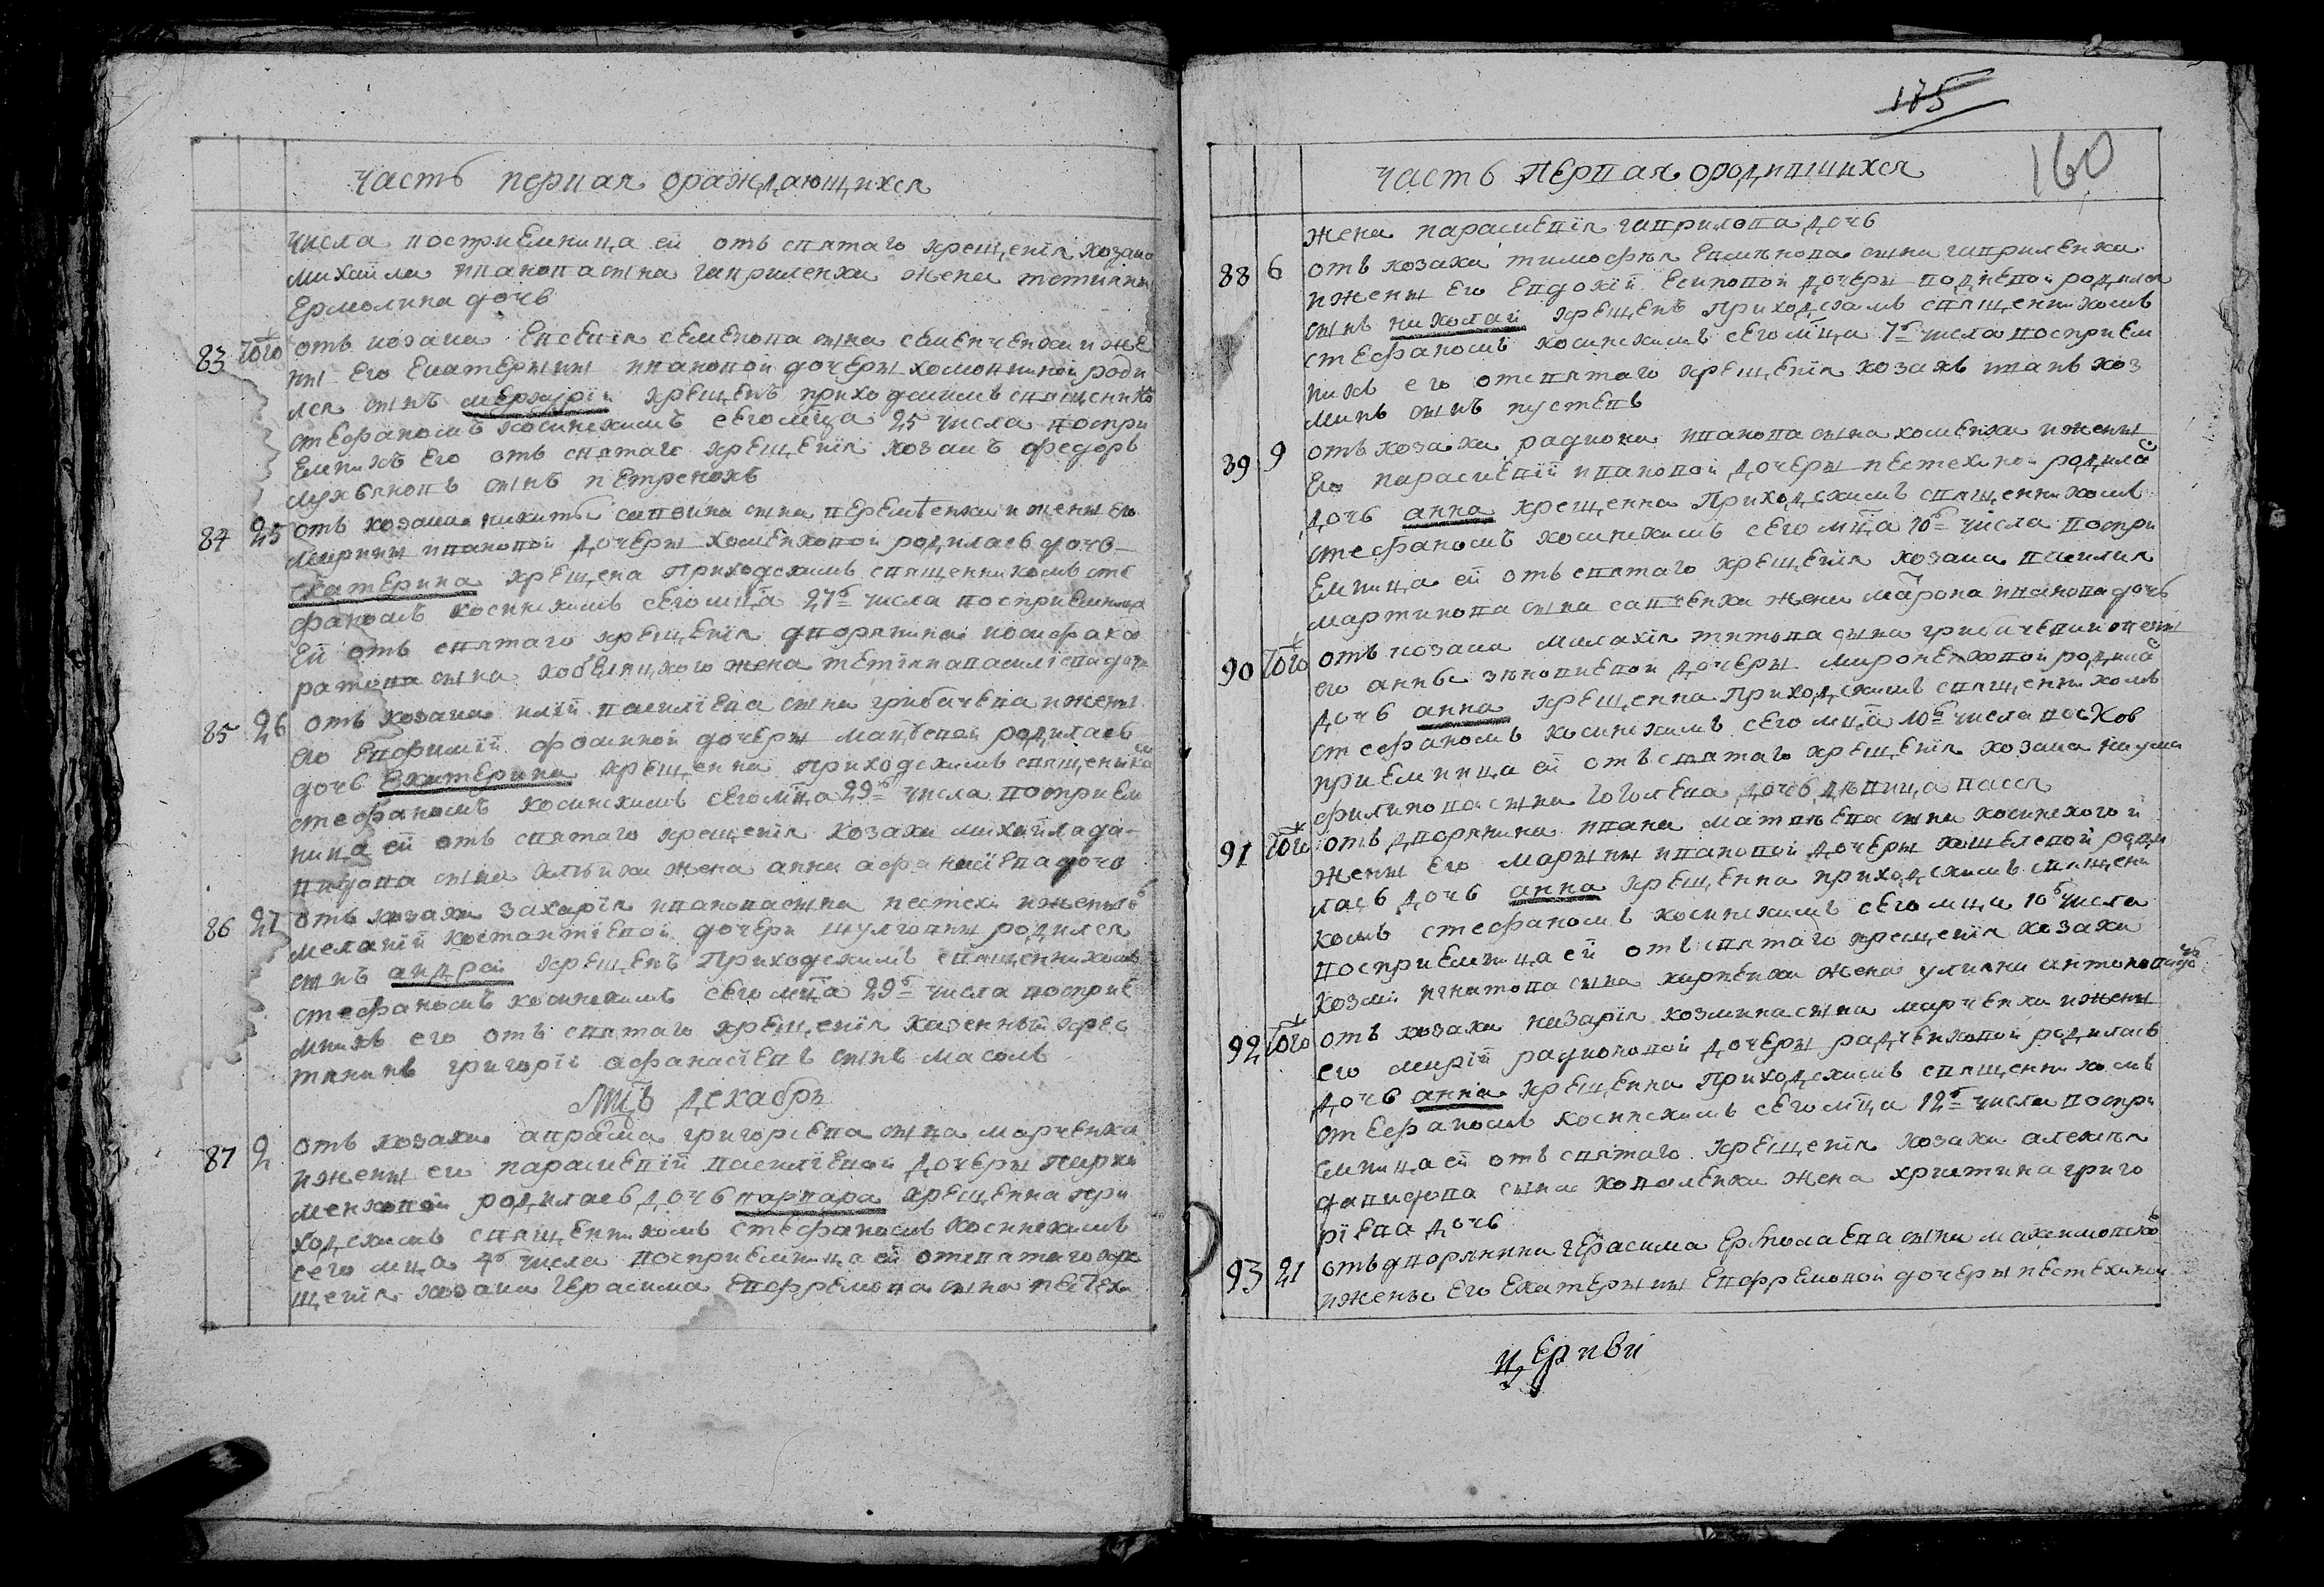 часть первая ораждающихся
числа восприемница ей отъ святаго крещенїя козака
михайла иванова сына гавриленка жена тетияна
Ермолина дочь
83 того отъ козака Евсевїя семенова сына семенченка и же
ны его Екатерины ивановой дочеры хомотниной роди
лся сынъ меркурїй крещенъ приходскимъ священнико
стефаномъ косинскимъ сего мца 25 числа воспри
емникъ его отъ святаго крещенїя козакъ федоръ
лукьяновъ сынъ петренокъ
84 25 отъ козака никиты саввина сына и жены его
мирины ивановой дочеры хоменковой родилась дочь
екатерина крещена приходскимъ священникомъ сте
фаномъ косинскимъ сего мца 27 числа восприемница
ей отъ святаго крещенїя дворянина
ратова сына кобелицкого жена тетїяна василїева дочь
85 26 отъ козака илїи василїева сына грибачева и жены
его Евфимїй фоминой дочеры родилась
дочь Екатерина крещенна приходскимъ священникомъ
стефаномъ косинскимъ сего мца 29 числа восприем
ница ей отъ святаго крещенїя козака михайла да
видова сына жена анна афанасїева дочь
86 27 отъ козака захарїя иванова сына пестехи и жены его
меланїй костантїевой дочери шулгины родился
сынъ андрей крещенъ Приходскимъ священникомъ
стефаномъ косинскимъ сего мца 29 числа восприе
мникъ его отъ святаго крещенїя казенный крес
тянинъ григорїй афанасїевъ сынъ масомъ
Мцъ декабрь
87 2 отъ козака аврама григорїева сына марченка
и жены его параскевїй василїевой дочеры пархо
менковой родилась дочь варвара крещенна при
ходскимъ священникомъ стефаномъ косинскимъ
сего мца 4 числа восприемница ей отсвятаго кре
щенїя козака герасима Евфремова сына пестехи
175
160
часть первая ородившихся
жена параскевїя гаврилова дочь
88 6 отъ козака тимофѣя сына гавриленка
и жены его Евдокїй Есиповой дочеры родился
сынъ николай крещенъ приходскимъ священникомъ
стефаномъ косинскимъ сего мца 7 числа восприем
никъ его отсвятаго крещенїя козакъ иванъ коз
минъ сынъ пустевъ
89 9 отъ козака радиона иванова сына хоменка и жены
его параскевїй ивановой дочеры пестехиной родила
дочь анна крещенна Приходскимъ священникомъ
стефаномъ косинскимъ сего мца 10 числа воспри
емница ей отъ святаго крещенїя козака василия
мартинова сына савченка жена иванова дочь
90 того отъ козака малахїя титова сына грибачева и жены
его анны зѣновиевой дочеры мироненковой родила
дочь анна крещенна приходскимъ священникомъ
стефаномъ косинскимъ сего мца 10 числа вос
приемница ей отъ святаго крещенїя козака наума
филипова сына гоголева дочь дѣвица васса
91 того отъ дворянина ивана матвѣева сына косинского и
жены его марины ивановой дочеры кошелевой роди
лась дочь анна крещенна приходскимъ священни
комъ стефаномъ косинскимъ сего мца 10 числа
восприемница ей отъ святаго крещенїя козака
козмы игнатова сына карпенка жена улияна антонова дочь
92 того отъ козака назарїя козмина сына марченка и жены
его марїй радионовой дочеры радченковой родилась
дочь анна крещенна Приходскимъ священникомъ
стефаномъ косинскимъ сего мца 12 числа воспри
емница ей отъ святаго крещенїя козака алексѣя
давидова сына коваленка жена христина григо
рїева дочь
93 21 отъ дворянина герасима Ермолаева сына максимовско
и жены его Екатерины Евфремовой дочеры пестехиной
церкви